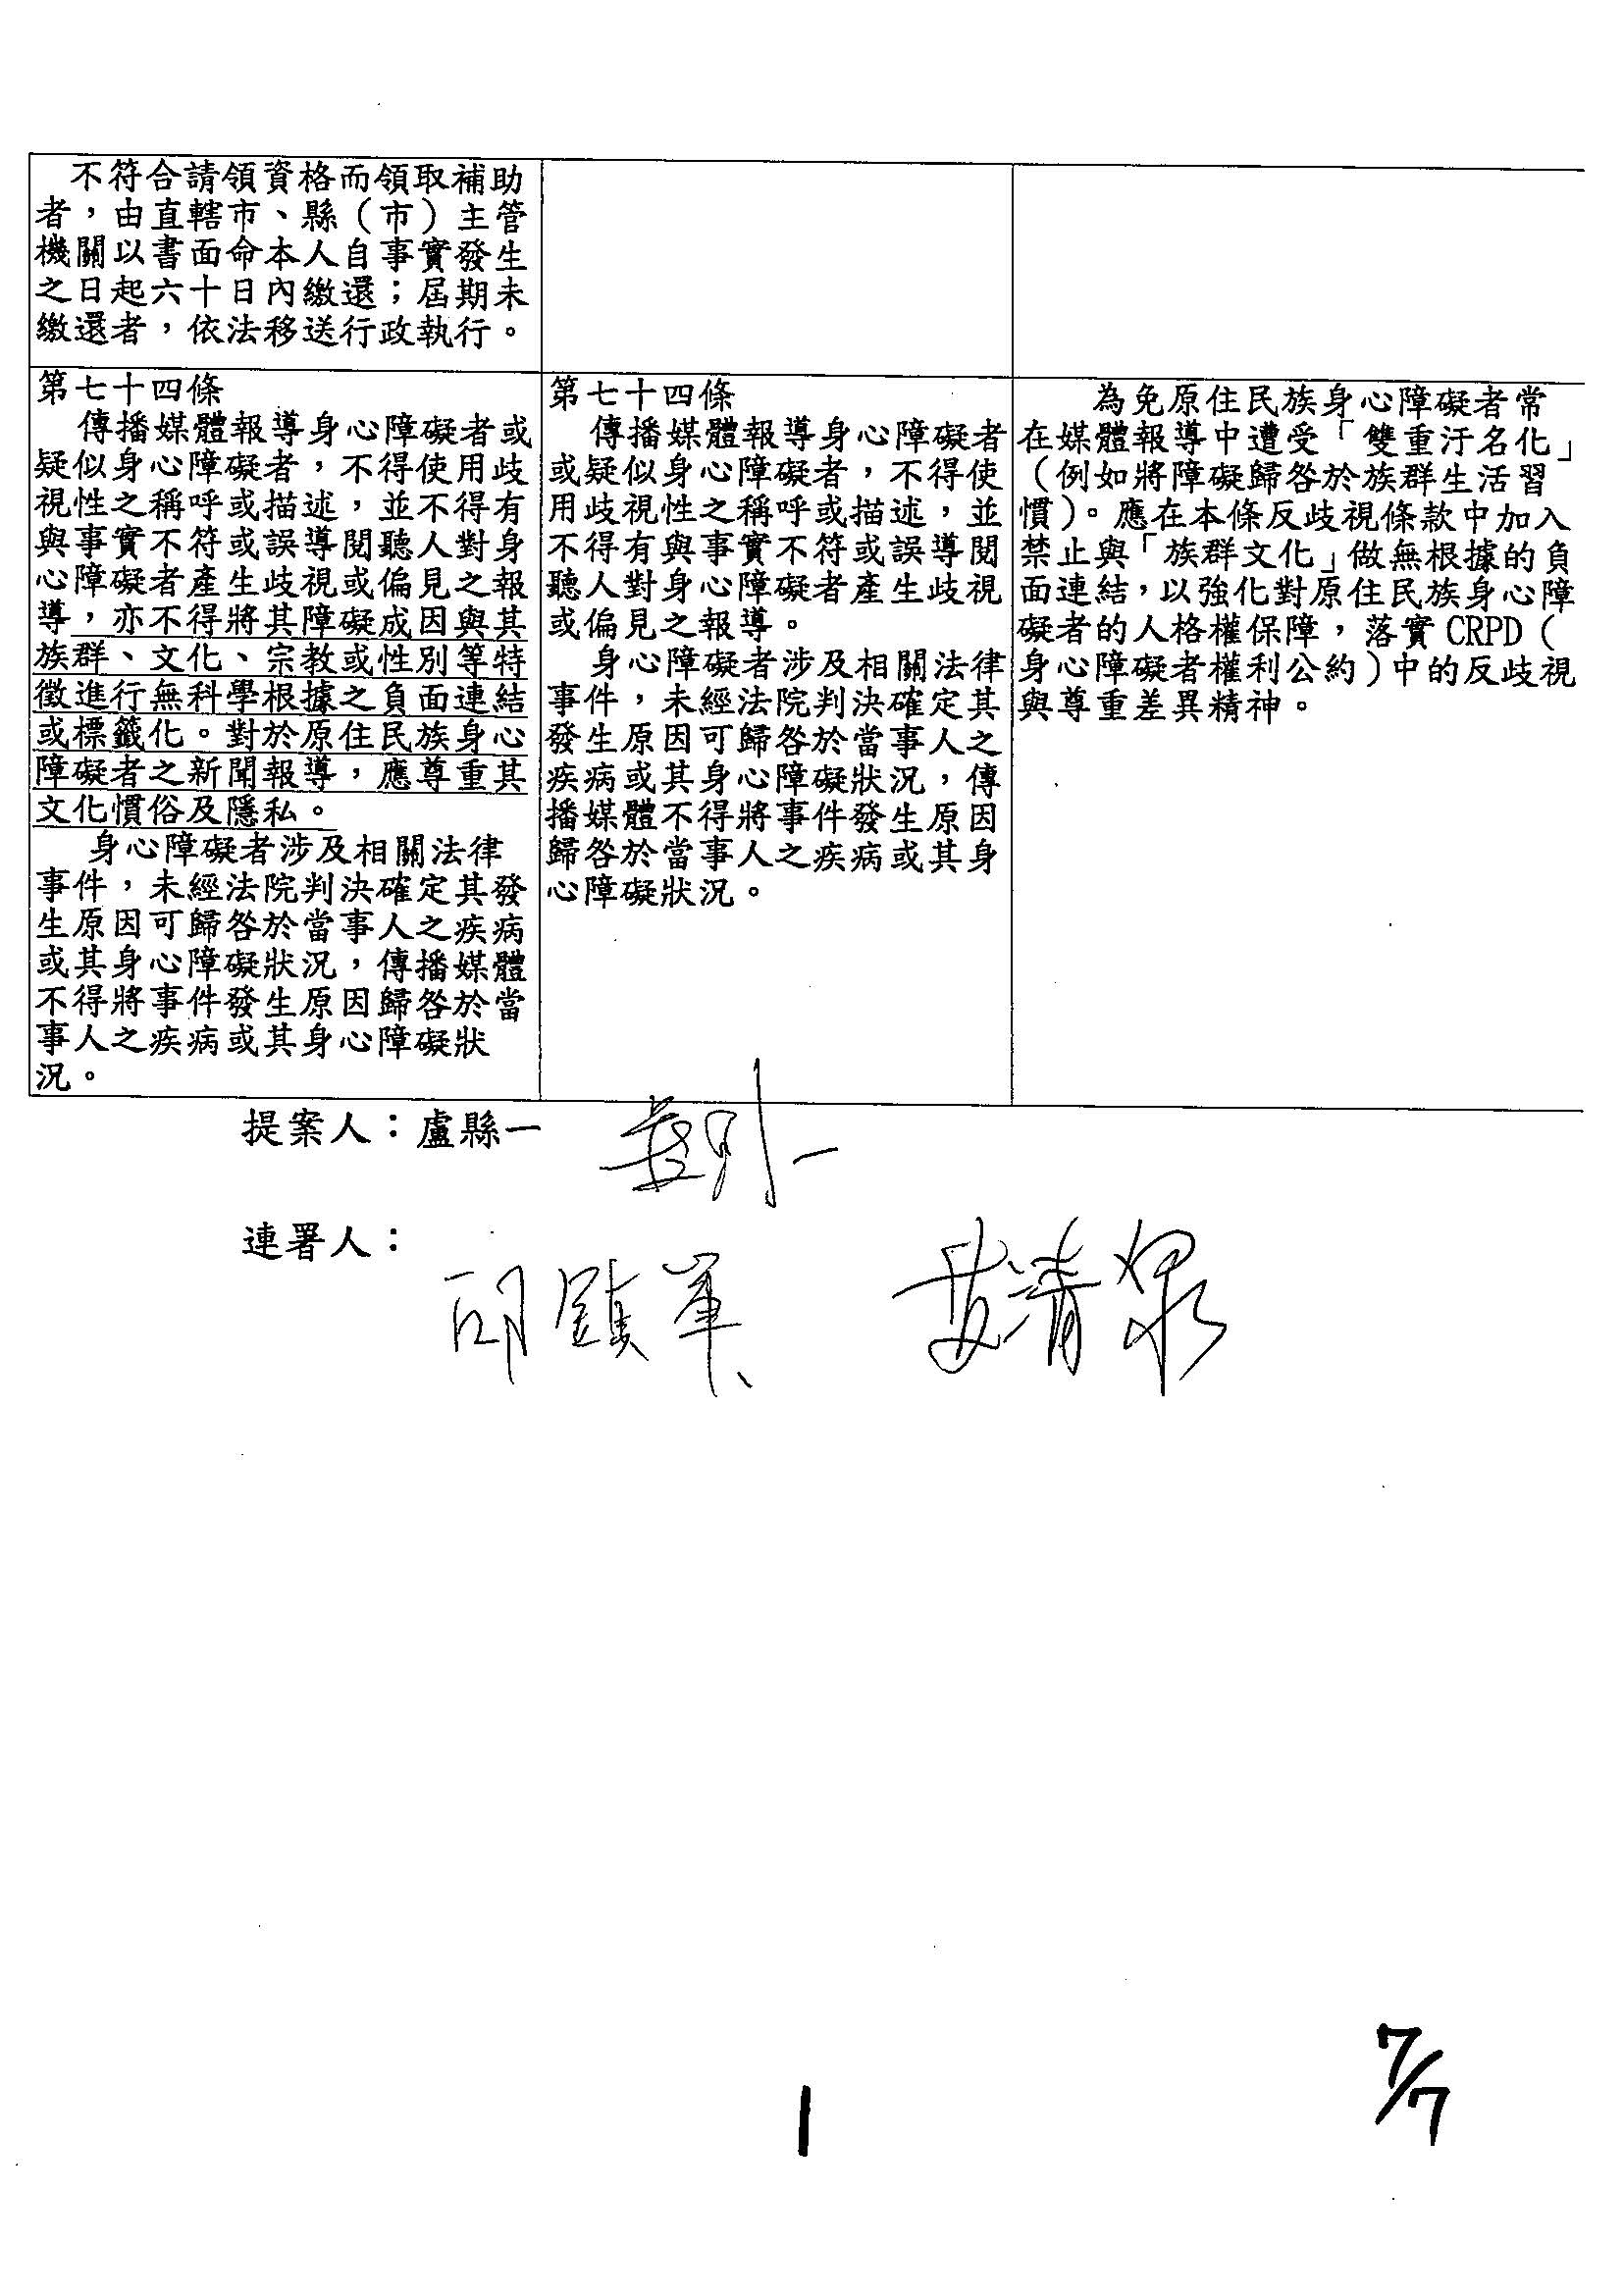 不符合請領資格而領取補助
者，由直轄市、縣（市）主管
機關以書面命本人自事實發生
之日起六十日內繳還；屆期未
繳還者，依法移送行政執行。
第七十四條
傳播媒體報導身心障礙者或
疑似身心障礙者，不得使用歧
視性之稱呼或描述，並不得有
與事實不符或誤導閱聽人對身
心障礙者產生歧視或偏見之報
導，亦不得將其障礙成因與其
族群、文化、宗教或性別等特
徵進行無科學根據之負面連結
或標籤化。對於原住民族身心
障礙者之新聞報導，應尊重其
文化慣俗及隱私。
身心障礙者涉及相關法律
事件，未經法院判決確定其發
生原因可歸咎於當事人之疾病
或其身心障礙狀況，傳播媒體
不得將事件發生原因歸咎於當
事人之疾病或其身心障礙狀
況。
第七十四條
傳播媒體報導身心障礙者
或疑似身心障礙者，不得使
用歧視性之稱呼或描述，並
不得有與事實不符或誤導閱
聽人對身心障礙者產生歧視
或偏見之報導。
身心障礙者涉及相關法律
事件，未經法院判決確定其
發生原因可歸咎於當事人之
疾病或其身心障礙狀況，傳
播媒體不得將事件發生原因
歸咎於當事人之疾病或其身
心障礙狀況。
為免原住民族身心障礙者常
在媒體報導中遭受「雙重汙名化」
（例如將障礙歸咎於族群生活習
慣）。應在本條反歧視條款中加入
禁止與「族群文化」做無根據的負
面連結，以強化對原住民族身心障
礙者的人格權保障，落實 CRPD（
身心障礙者權利公約）中的反歧視
與尊重差異精神。
提案人：盧縣一
連署人：
邱鎮軍 黃清泉
1
7/7